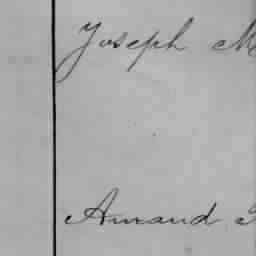 Joseph M
Amand